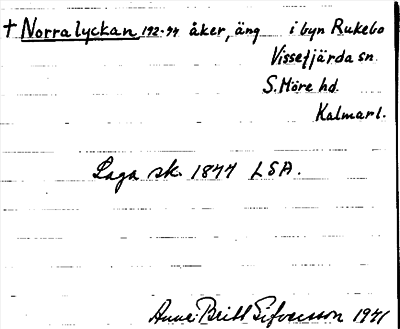 † Norra lyckan 192-94 åker, äng i byn Rukebo
Vissefjärda sn.
S. Möre hd.
Kalmar l.
Laga sk. 1877 LSA.
Anne-Britt Sifversson 1971